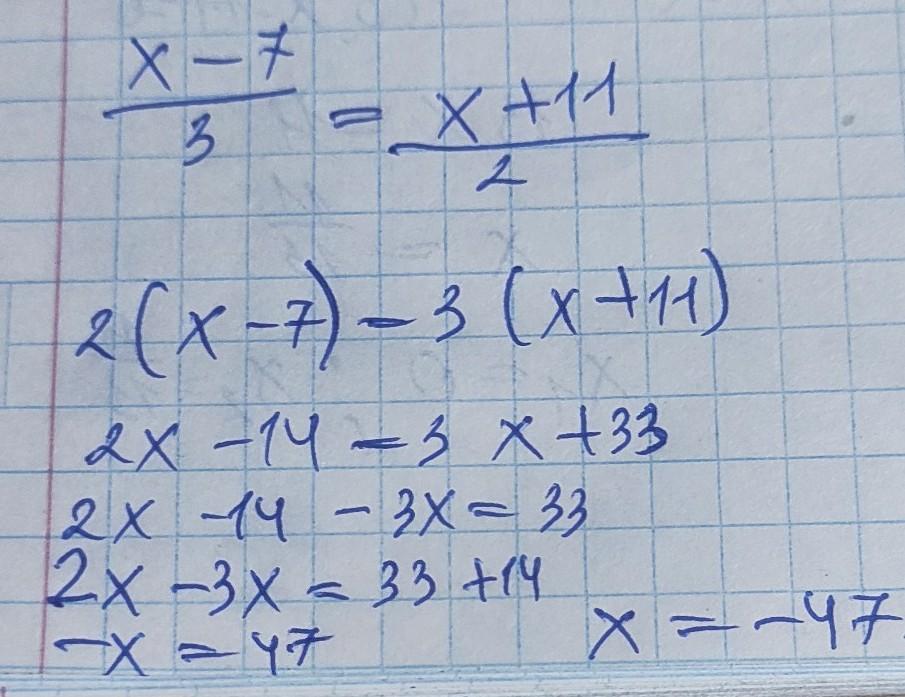 x - 7 / 3 = x + 11 / 2
2(x - 7) = 3(x + 11)
2x - 14 = 3x + 33
2x - 14 - 3x = 33
2x - 3x = 33 + 14
-x = 47 x = -47